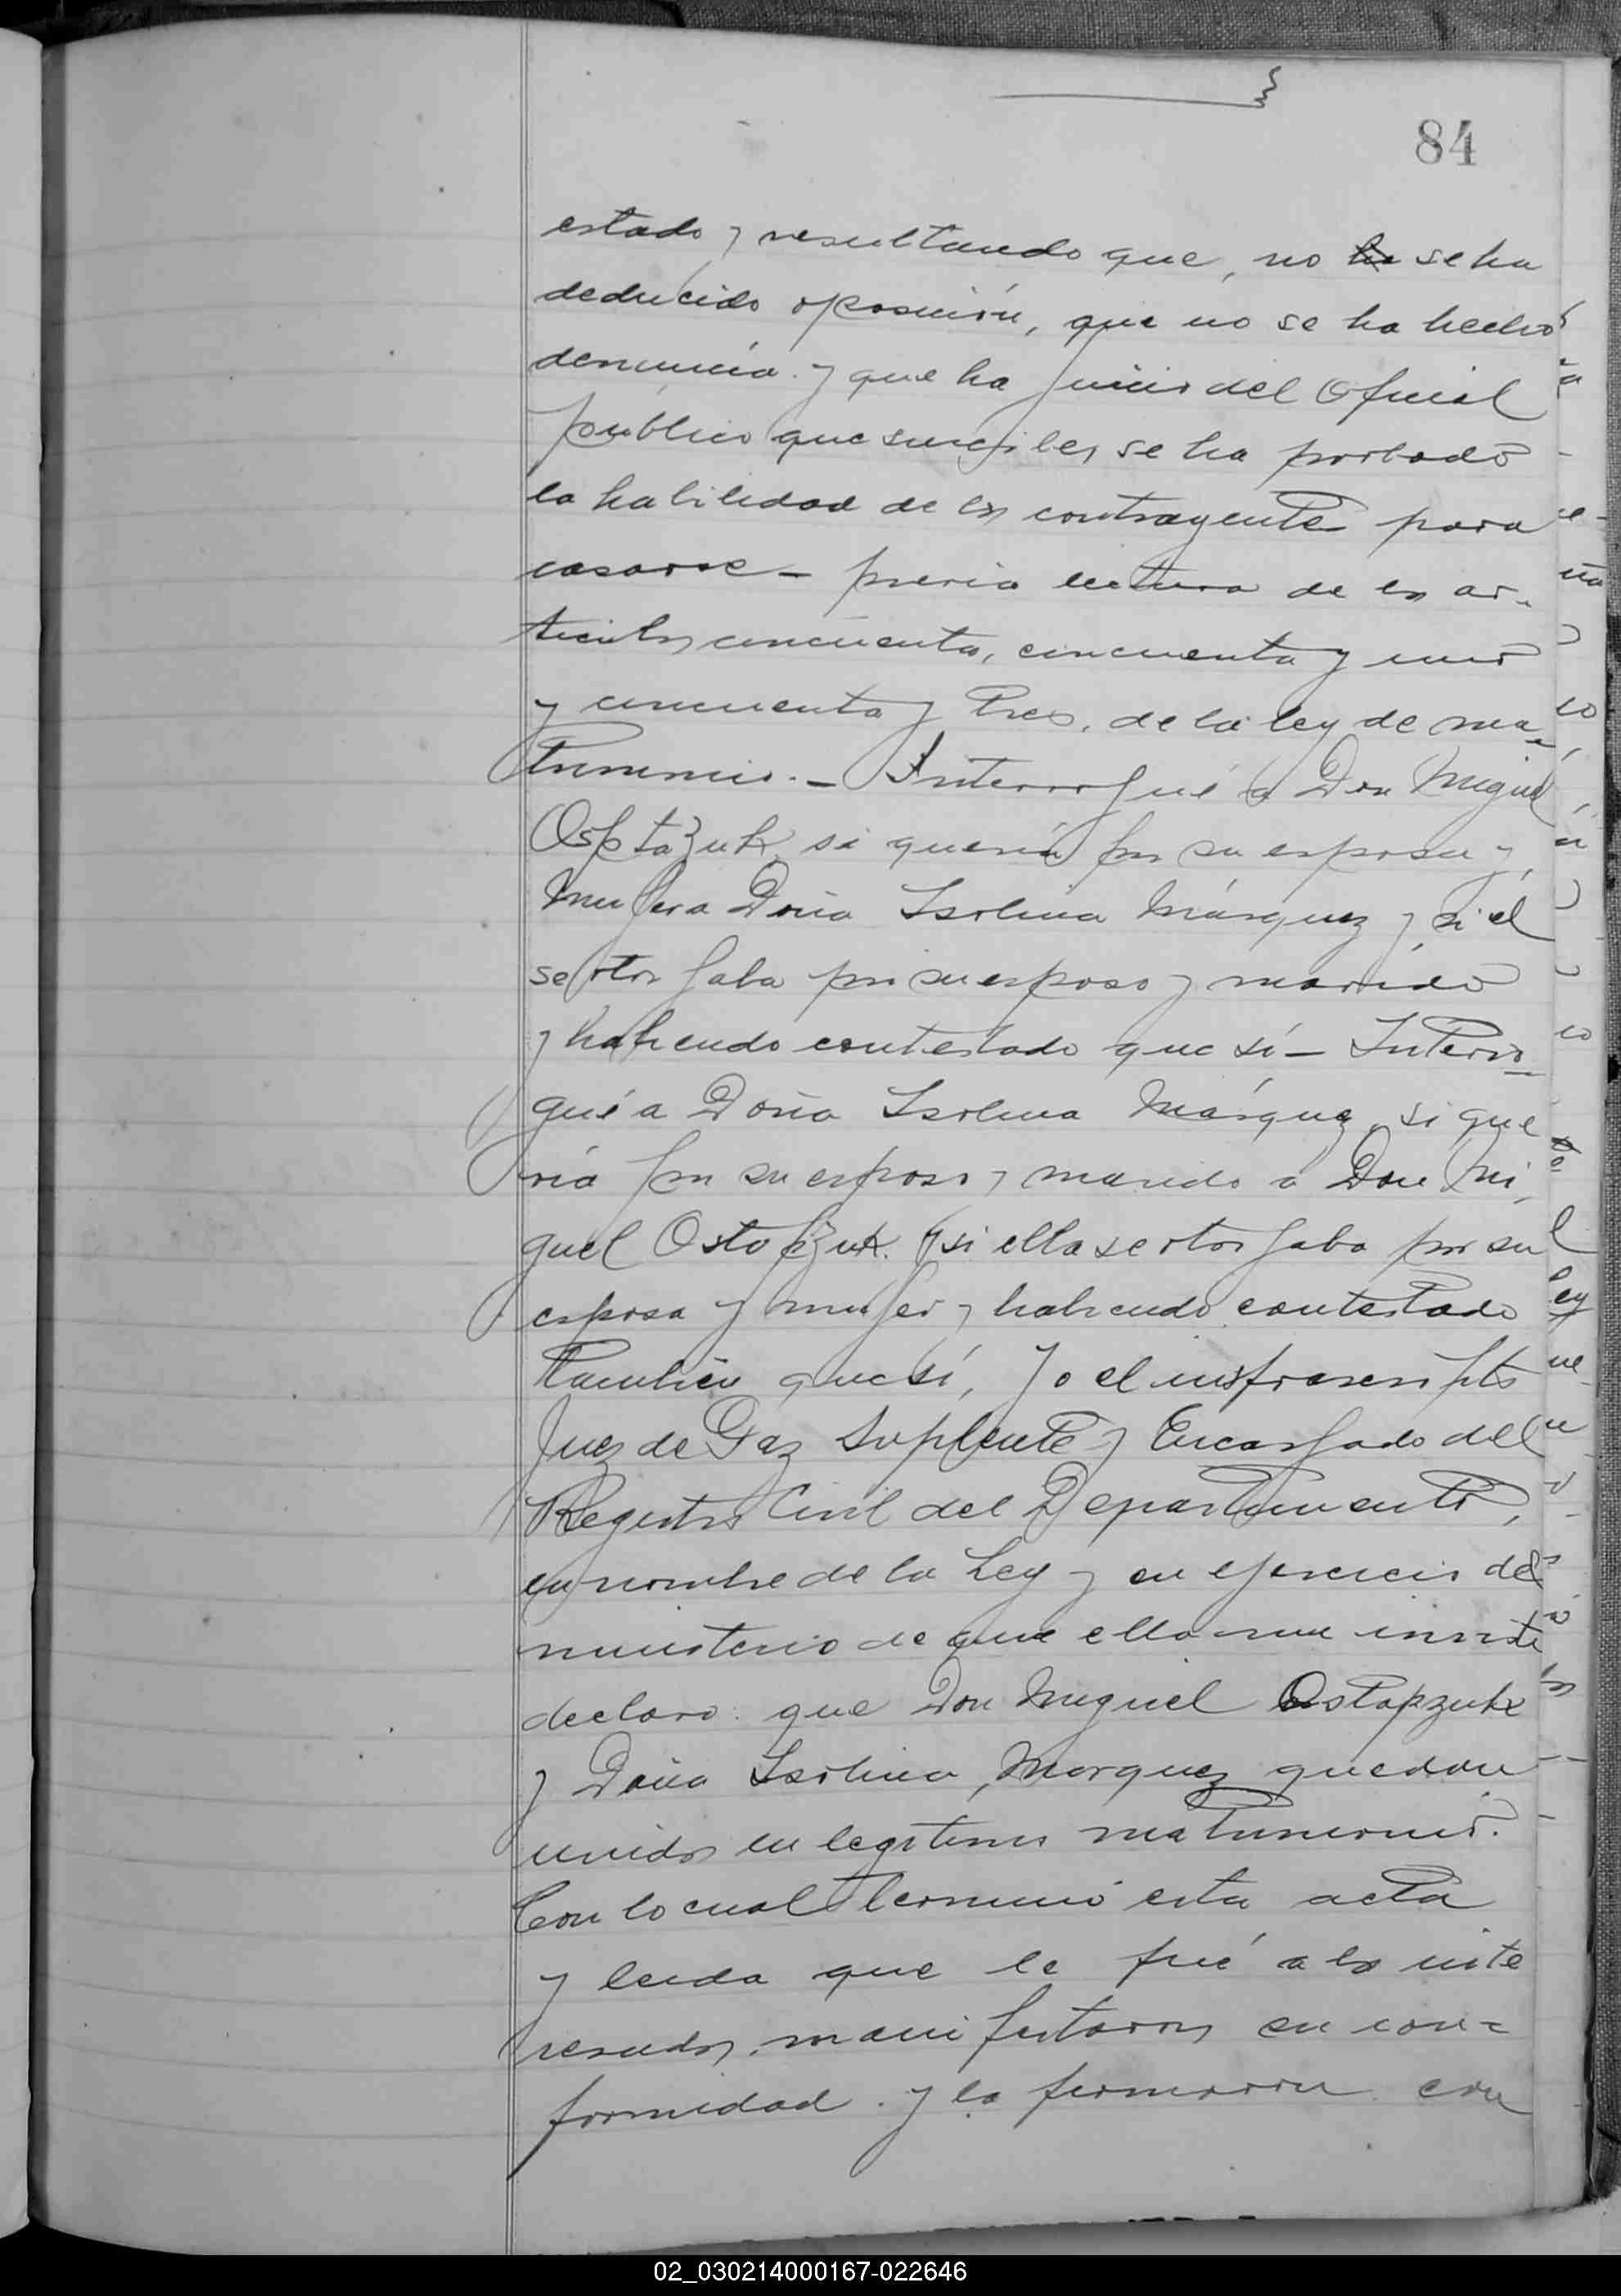 84
estado y resultando que, no ha se ha
deducido oposición, que no se ha hecho
denuncia. y que ha juicio del Oficial
público que suscribe, se ha probado
la habilidad de los contrayentes para
casarse – previa lectura de los ar-
ticulos cincuenta, cincuenta y uno
y cincuenta y tres, de la ley de ma-
trimonio. – Interrogué a Don Miguel
Osptazuk, si quería por su esposa y
mujer a Doña Isolina Márquez y si él
se otorgaba por su esposo y marido
y habiendo contestado que sí – Interro-
gué a Doña Isolina Márquez, si que
ría por su esposo y marido a Don Mi-
guel Ostapzuk. y si ella se otorgaba por su
esposa y mujer y habiendo contestado
también que sí, Yo el infrascripto
Juez de Paz Suplente y Encargado del
Registro Civil del Departamento,
en nombre de la Ley y en ejercicio del
ministerio de que ella me inviste
declaro: que Don Miguel Ostapzuk
y Doña Isolina Marquez quedan
unidos en legitimo matrimonio.
Con lo cual terminó esta acta
y leida que le fué a los inte
resados, manifestaron su con-
formidad. y la firmaron con
02_030214000167-022646